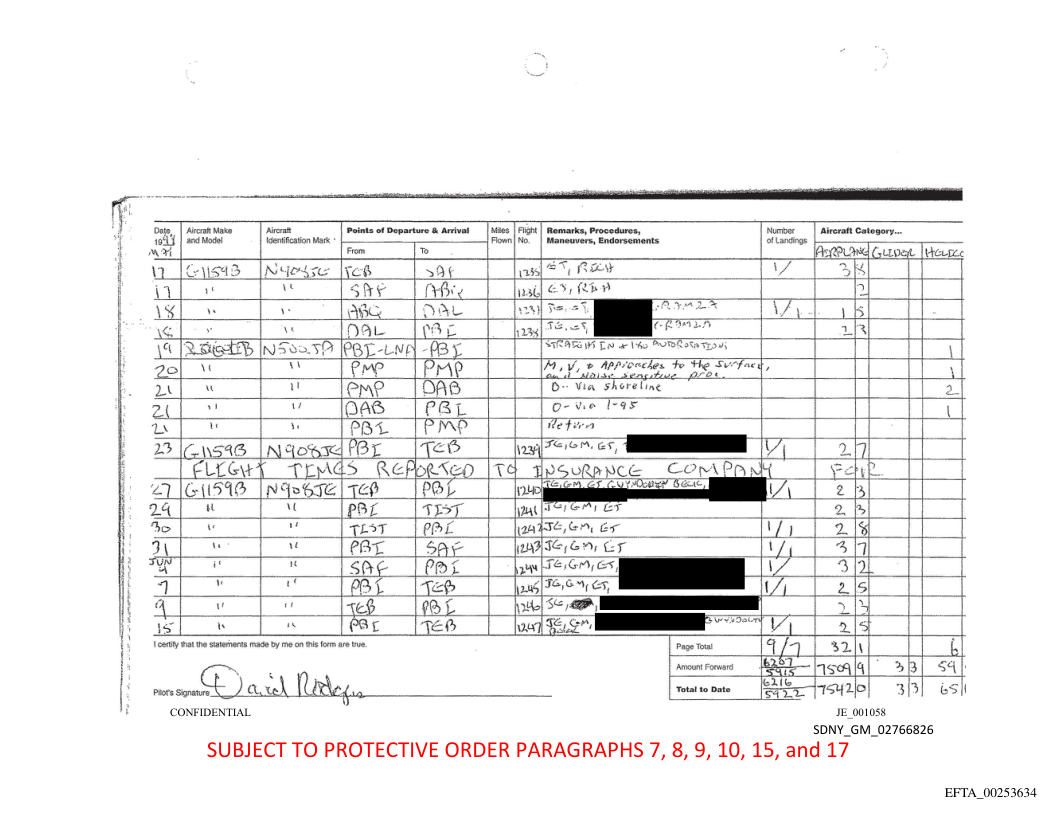 Date Aircraft Make and Model Aircraft Identification Mark Points of Departure & Arrival From To Miles Flown Flight No. Remarks, Procedures, Maneuvers, Endorsements Number of Landings Aircraft Category...
MAY AIRPLANE GLIDER HELICO
17 G1159B N908JE TEB SAF 1235 ET, RICH 1/ 3 8
17 " " SAF 1236 ET, RICH 2
18 " " ABQ DAL JE, ET, 1/1 1 5
18 " " DAL PBI 1238 JE, ET, 2 3
19 PBI-LNA-PBI STRAIGHT IN & 180 AUTOROTATIONS 1
20 " " PMP PMP M, V, & Approaches to the surface, 1
and noise sensitive proc.
21 " " PMP DAB D-- Via shoreline 2
21 " " DAB PBI D- Via I-95 1
21 " " PBI PMP Return
23 G1159B N908JE PBI TEB 1239 JE, GM, ET, 1/1 2 7
FLIGHT TIMES REPORTED TO INSURANCE COMPANY FOR
27 G1159B N908JE TEB PBI 1240 JE, GM, ET 1/1 2 3
29 " " PBI TIST 1241 JE, GM, ET 2 3
30 " " TIST PBI 1242 JE, GM, ET 1/1 2 8
31 " " PBI SAF 1243 JE, GM, ET 1/1 3 7
JUN 4 " " SAF PBI 1244 JE, GM, ET, 1/ 3 2
7 " " PBI TEB 1245 JE, GM, ET, 1/1 2 5
9 " " TEB PBI 1246 JE, 2 3
15 " " PBI TEB 1247 JE, GM, 1/ 2 5
I certify that the statements made by me on this form are true. Page Total 9/7 32 1 6
Amount Forward 6207 5915 7509 9 3 3 59
Pilot's Signature David Rodgers Total to Date 6216 5922 7542 0 3 3 65
CONFIDENTIAL JE_001058
SDNY_GM_02766826
SUBJECT TO PROTECTIVE ORDER PARAGRAPHS 7, 8, 9, 10, 15, and 17
EFTA_00253634